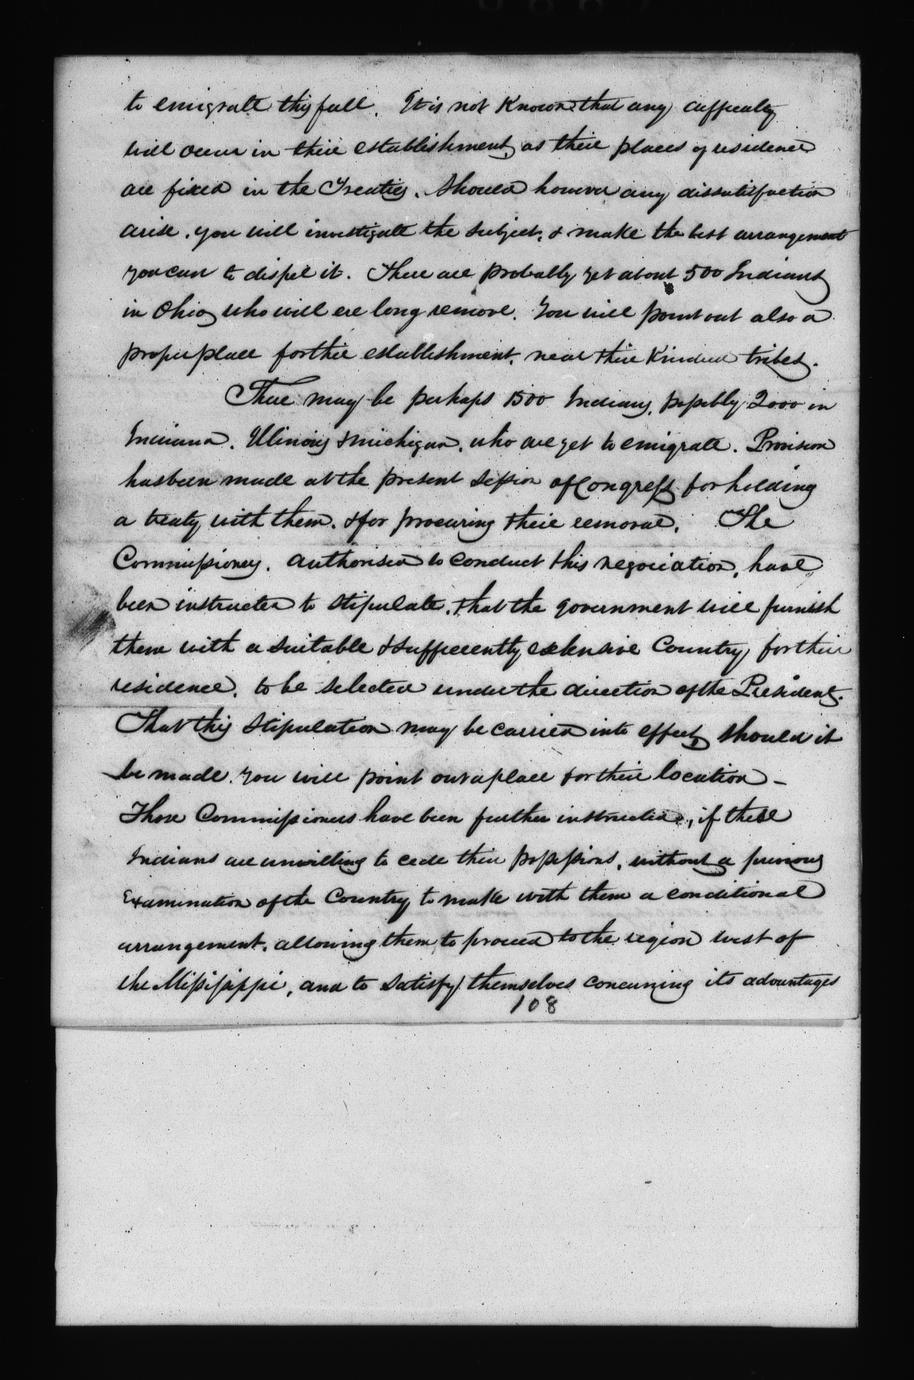 to emigrate this fall. It is not Known that any difficulty
will occur in their establishment, as their places of residence
are fixed in the Treaties. Should however any dissatisfaction
arise, you will investigate the subject, & make the best arrangement
you can to dispel it. There are probably yet about 500 Indians
in Ohio, who will ere long remove. You will point out also a
proper place for their establishment, near their Kindred tribes.
There may be perhaps 1500 Indians, possibly 2000 in
Indiana, Illinois & Michigan, who are yet to emigrate. Provision
has been made at the present Session of Congress for holding
a treaty with them, & for procuring their removal. The
Commissioners, authorised to conduct this negociation, have
been instructed to stipulate, that the government will furnish
them with a suitable & sufficiently extensive Country, for their
residence, to be selected under the direction of the President.
That this Stipulation may be carried into effect, should it
be made, you will point out a place for their location –
Those Commissioners have been further instructed, if these
Indians are unwilling to cede their possessions, without a previous
Examination of the Country, to make with them a conditional
arrangement, allowing them to proceed to the region west of
the Missisippi, and to satisfy themselves concerning its advantages
108